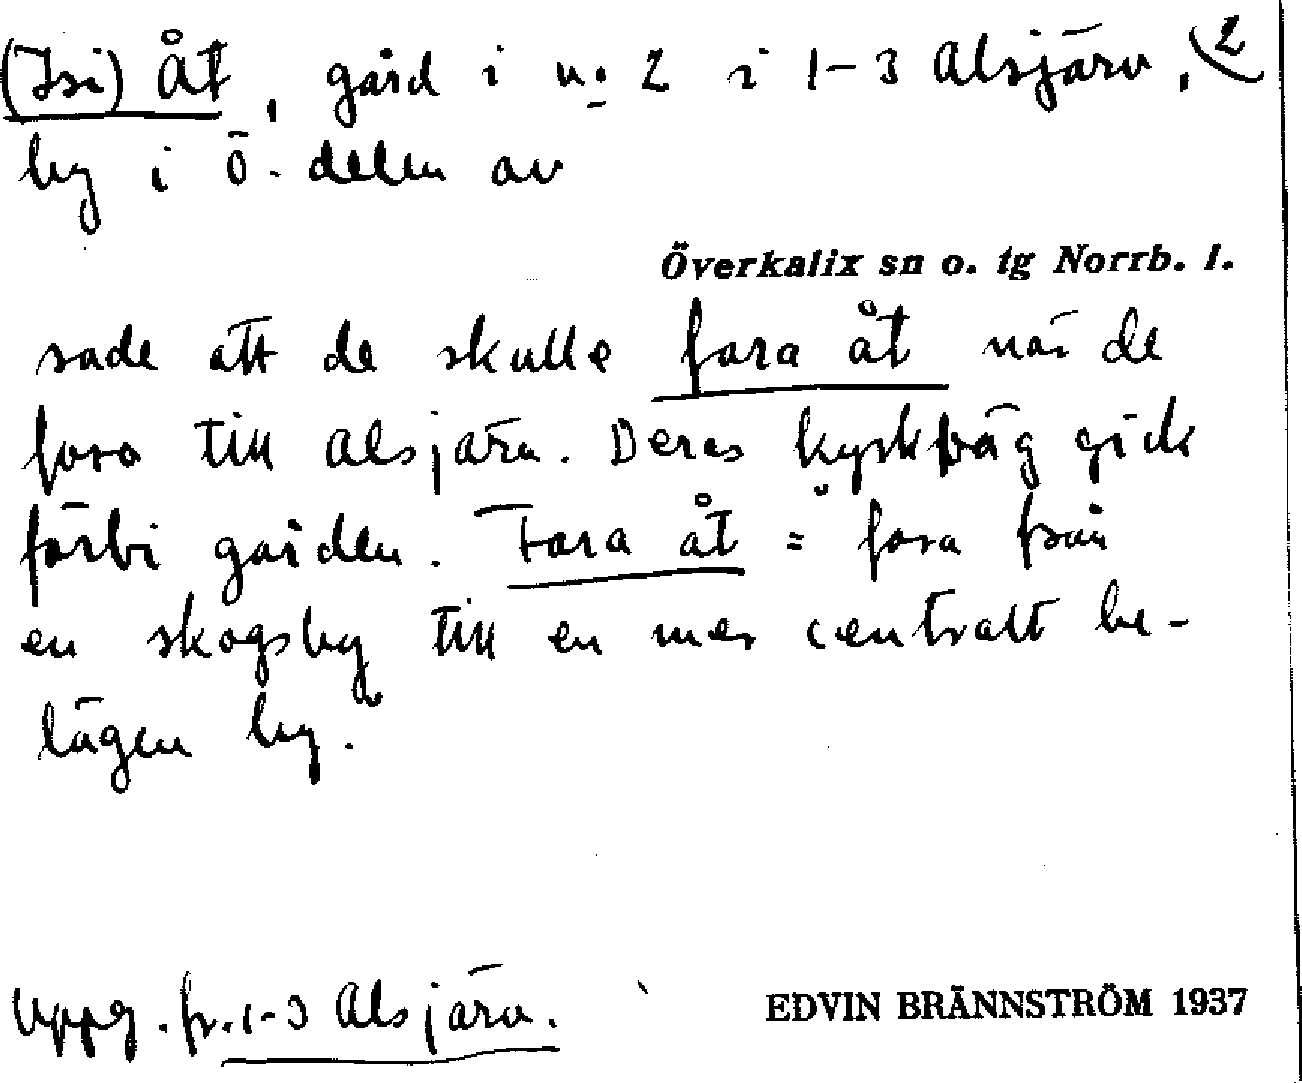 (Isi) Åt, gård i n:o 2 i 1-3 Alsjärv, 2
by i ö. delen av
Överkalix sn o. tg Norrb. l.
sade att de skulle fara åt när de
foro till Alsjärv. Deras kyrkväg gick
förbi gården. Fara åt = fara från
en skogsby till en mer centralt be-
lägen by.
Uppg. fr. 1-3 Alsjärv.
EDVIN BRÄNNSTRÖM 1937